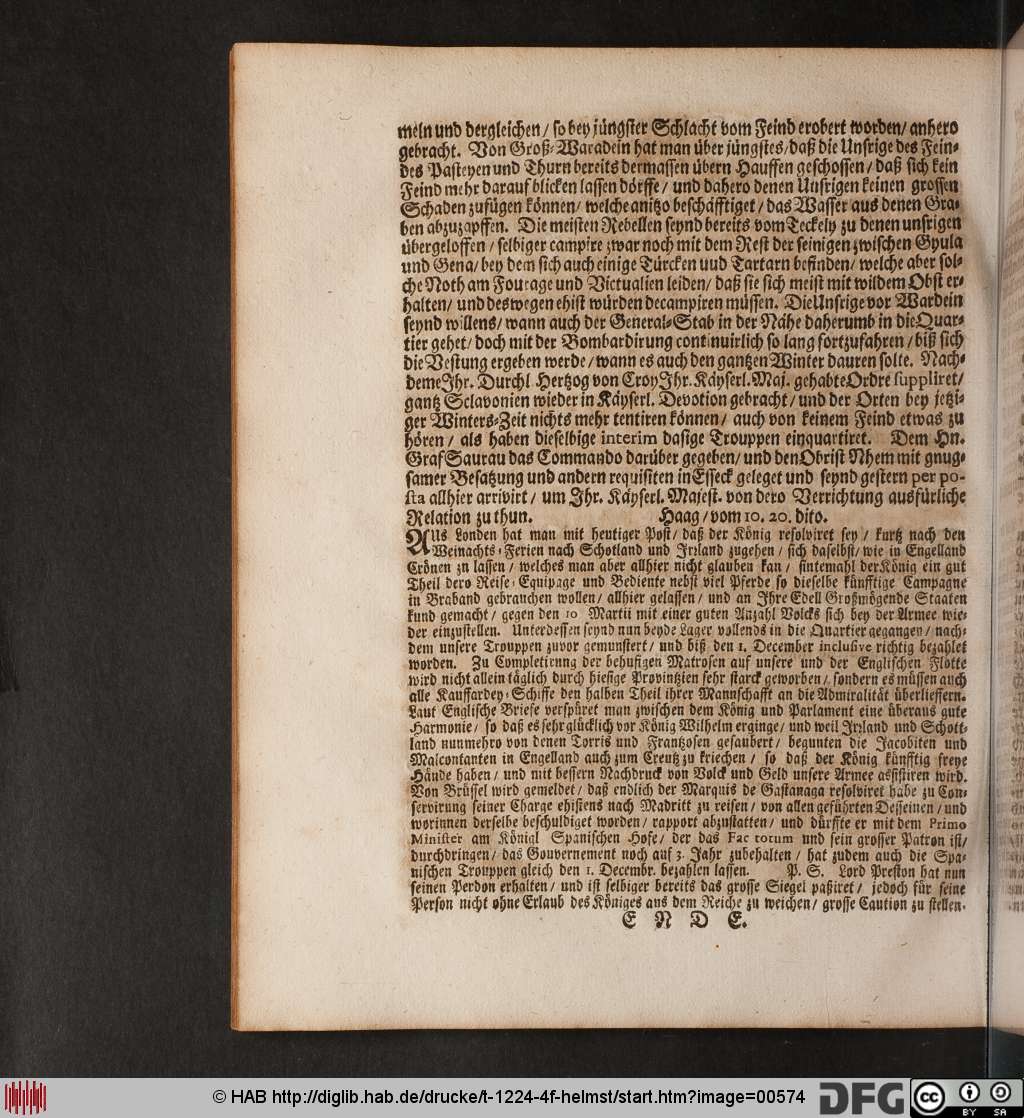 meln und dergleichen / so bey jüngster Schlacht vom Feind erobert worden / anhero
gebracht. Von Groß-Waradein hat man über jüngstes / daß die Unsrige des Fein-
des Pasteyen und Thurn bereits dermassen übern Hauffen geschossen / daß sich kein
Feind mehr darauf blicken lassen dörffe / und dahero denen Unsrigen keinen grossen
Schaden zufügen können / welche anitzo beschäfftiget / das Wasser aus denen Gra-
ben abzuzapffen. Die meisten Rebellen seynd bereits vom Teckely zu denen unsrigen
übergeloffen / selbiger campire zwar noch mit dem Rest der seinigen zwischen Gyula
und Gena / bey dem sich auch einige Türcken uud Tartarn befinden / welche aber sol-
che Noth am Fourage und Victualien leiden / daß sie sich meist mit wildem Obst er-
halten / und deswegen ehist würden decampiren müssen. Die Unsrige vor Wardein
seynd willens / wann auch der General-Stab in der Nähe daherumb in die Quar-
tier gehet / doch mit der Bombardirung continuirlich so lang fortzufahren / biß sich
die Vestung ergeben werde / wann es auch den gantzen Winter dauren solte. Nach-
deme Ihr. Durchl Hertzog von Croy Ihr. Käyserl. Maj. gehabte Ordre suppliret /
gantz Sclavonien wieder in Käyserl. Devotion gebracht / und der Orten bey jetzi-
ger Winters-Zeit nichts mehr tentiren können / auch von keinem Feind etwas zu
hören / als haben dieselbige interim dasige Trouppen einquartiret. Dem Hn.
Graf Saurau das Commando darüber gegeben / und den Obrist Nhem mit gnug-
samer Besatzung und andern requisiten in Esseck geleget und seynd gestern per po-
sta allhier arrivirt / um Ihr. Käyserl. Majest. von dero Verrichtung ausfürliche
Relation zu thun. Haag / vom 10. 20. dito.
Aus Londen hat man mit heutiger Post / daß der König resolviret sey / kurtz nach den
Weinachts-Ferien nach Schotland und Irrland zugehen / sich daselbst / wie in Engelland
Crönen zu lassen / welches man aber allhier nicht glauben kan / sintemahl der König ein gut
Theil dero Reise-Equipage und Bediente nebst viel Pferde so dieselbe künfftige Campagne
in Braband gebrauchen wollen / allhier gelassen / und an Ihre Edell Großmögende Staaten
kund gemacht / gegen den 10 Martii mit einer guten Anzahl Volcks sich bey der Armee wie-
der einzustellen. Unterdessen seynd nun beyde Lager vollends in die Quartier gegangen / nach-
dem unsere Trouppen zuvor gemunstert / und biß den 1. December inclusive richtig bezahlet
worden. Zu Completirung der behufigen Matrosen auf unsere und der Englischen Flotte
wird nicht allein täglich durch hiesige Provintzien sehr starck geworben / sondern es müssen auch
alle Kauffardey-Schiffe den halben Theil ihrer Mannschafft an die Admiralität überlieffern.
Laut Englische Briefe verspüret man zwischen dem König und Parlament eine überaus gute
Harmonie / so daß es sehr glücklich vor König Wilhelm erginge / und weil Irrland und Schott-
land nunmehro von denen Torris und Frantzosen gesaubert / begunten die Jacobiten und
Malcontanten in Engelland auch zum Creutz zu kriechen / so daß der König künfftig freye
Hände haben / und mit bessern Nachdruck von Volck und Geld unsere Armee assistiren wird.
Von Brüssel wird gemeldet / daß endlich der Marquis de Gastanaga resolviret habe zu Con-
servirung seiner Charge ehistens nach Madritt zu reisen / von allen geführten Desseinen / und
worinnen derselbe beschuldiget worden / rapport abzustatten / und dürffte er mit dem Primo
Minister am Königl Spanischen Hofe / der das Factorum und sein grosser Patron ist /
durchdringen / das Gouvernement noch auf 3. Jahr zubehalten / hat zudem auch die Spa-
nischen Trouppen gleich den 1. Decembr. bezahlen lassen. P. S. Lord Preston hat nun
seinen Perdon erhalten / und ist selbiger bereits das grosse Siegel paßiret / jedoch für seine
Person nicht ohne Erlaub des Königes aus dem Reiche zu weichen / grosse Caution zu stellen.
E N D E.
© HAB http://diglib.hab.de/drucke/t-1224-4f-helmst/start.htm?image=00574
DFG cc BY SA